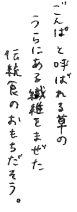 ごんぱと呼ばれる草の
うらにある繊維をまぜた
伝統食のおもちだそう。